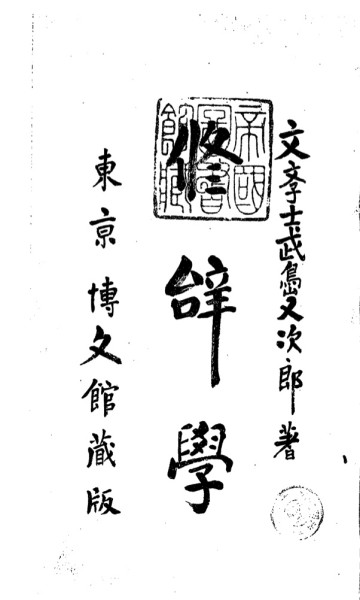 文学士武島又次郎著
修辞學
東京博文館蔵版
帝國圖書館藏